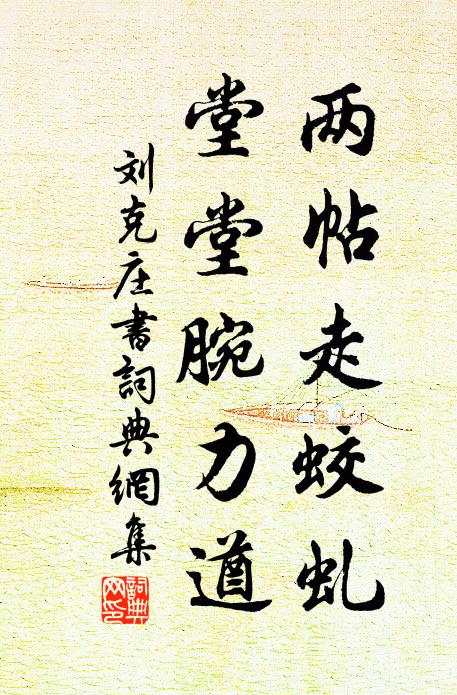 两帖走蛟虬
堂堂腕力遒
刘克庄書詞典網集
詞典
网印